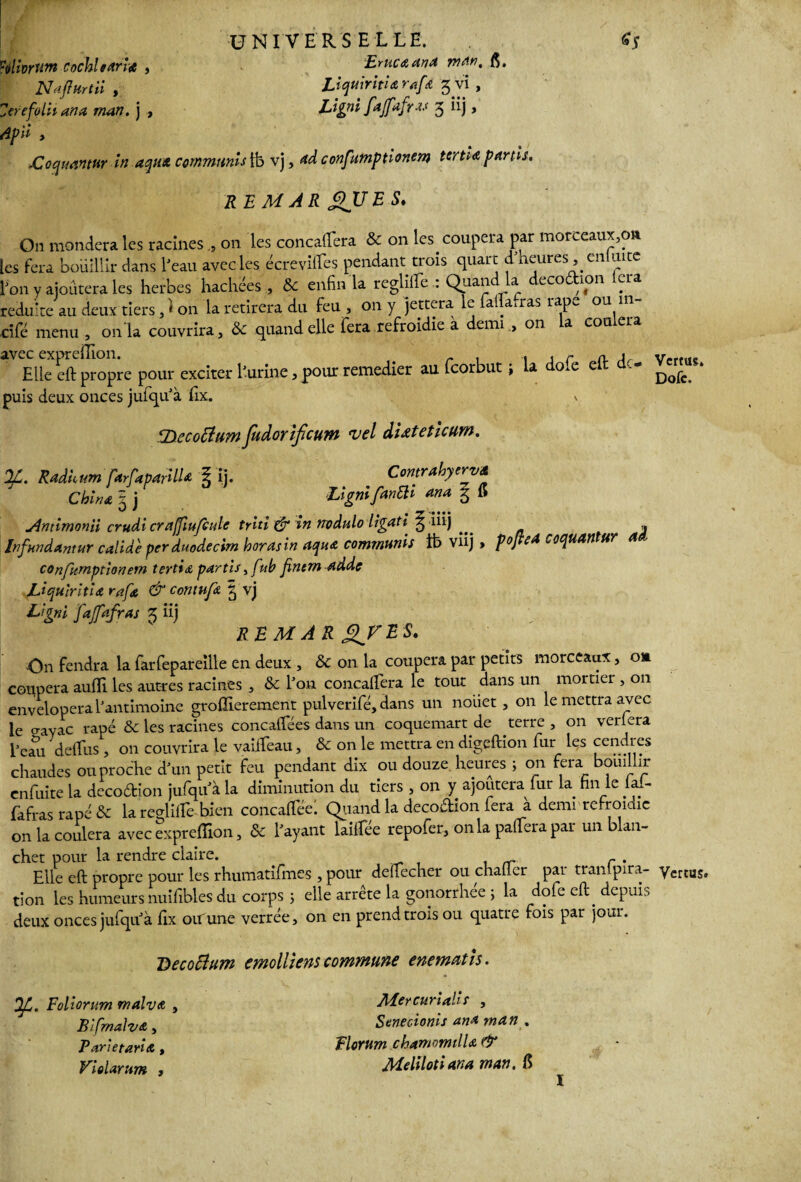 UNIVERSELLE. 65
Foliorum cochleariæ ,
Nasturtii ,
Cerefolii ana man. j ,
Apii ,
Erucæ ana man. ß.
Liquiritiæ rasæ ʒ vi ,
Ligni sassafras ʒ iij ,
Coquantur in aquæ communis ℔ vj , ad consumptionem tertiæ partis.
REMARQUES.
On mondera les racines , on les concassera & on les coupera par morceaux, on
les fera boüillir dans l'eau avec les écrevisses pendant trois quart d'heures, ensuite
l'on y ajoûtera les herbes hachées , & enfin la reglisse : Quand la decoction sera
reduite au deux tiers , on la retirera du feu , on y jettera le sassafras rapé ou in-
cisé menu , on la couvrira, & quand elle sera refroidie à demi , on la coulera
avec expression.
Elle est propre pour exciter l'urine, pour remedier au scorbut ; la dose est de-
puis deux onces jusqu'à six.
Vertus.
Dose.
Decoctum sudorificum vel diæteticum.
♃. Radicum sarsaparillæ ℥ ij.
Chinæ ℥ j
Contrahyervæ
Ligni sancti ana ℥ ß
Antimonii crudi crassiuscule triti & in nodulo ligati ℥ iiij
Infundantur calidè per duodecim horas in aquæ communis ℔ viij , postea coquantur ad
consumptionem tertiæ partis, sub finem adde
Liquiritiæ rasæ & contusæ ℥ vj
Ligni sassafras ʒ iij
REMARQVES.
On fendra la sarsepareille en deux , & on la coupera par petits morceaux, on
coupera aussi les autres racines , & l'on concassera le tout dans un mortier , on
envelopera l'antimoine grossierement pulverisé, dans un noüet , on le mettra avec
le gayac rapé & les racines concassées dans un coquemart de terre , on versera
l'eau dessus , on couvrira le vaisseau , & on le mettra en digestion sur les cendres
chaudes ou proche d'un petit feu pendant dix ou douze heures ; on fera boüillir
ensuite la decoction jusqu'à la diminution du tiers , on y ajoûtera sur la fin le sas-
safras rapé & la reglisse bien concassée. Quand la decoction sera à demi refroidie
on la coulera avec expression, & l'ayant laissée reposer, on la passera par un blan-
chet pour la rendre claire.
Elle est propre pour les rhumatismes , pour dessecher ou chasser par transpira-
tion les humeurs nuisibles du corps ; elle arrête la gonorrhée ; la dose est depuis
deux onces jusqu'à six ou une verrée, on en prend trois ou quatre fois par jour.
Vertus.
Decoctum emolliens commune enematis.
♃. Foliorum malvæ ,
Bismalvæ ,
Parietariæ ,
Violarum ,
Mercurialis ,
Senecionis ana man .
Florum chamomillæ &
Meliloti ana man. ß
I